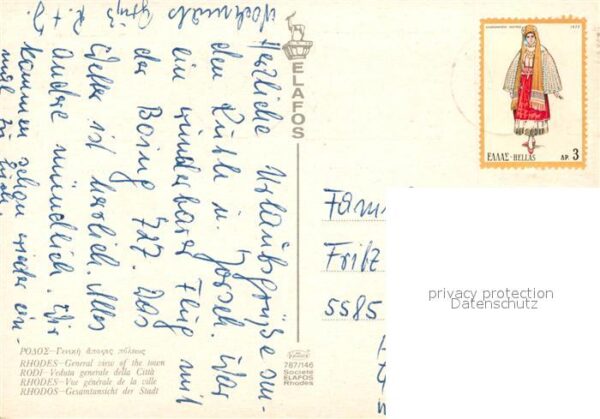 Herzliche Urlaubsgrüße sen-
den Ruth u. Jorsch. War
ein wunderbarer Flug mit
der Boing 727. Das
Wetter ist herrlich. Alles
andere mündlich. Wir
kommen schon wieder ein-
mal zu Euch.
Nochmals Gruß R. + J.
ELAFOS
1972
ΕΛΛΑΣ-HELLAS ΔΡ. 3
Fami
Fritz
5585
privacy protection
Datenschutz
ΡΟΔΟΣ—Γενική άποψις πόλεως
RHODES—General view of the town
RODI—Veduta generale della Città
RHODES—Vue générale de la ville
RHODOS—Gesamtansicht der Stadt
787/146
Société
ELAFOS
Rhodes